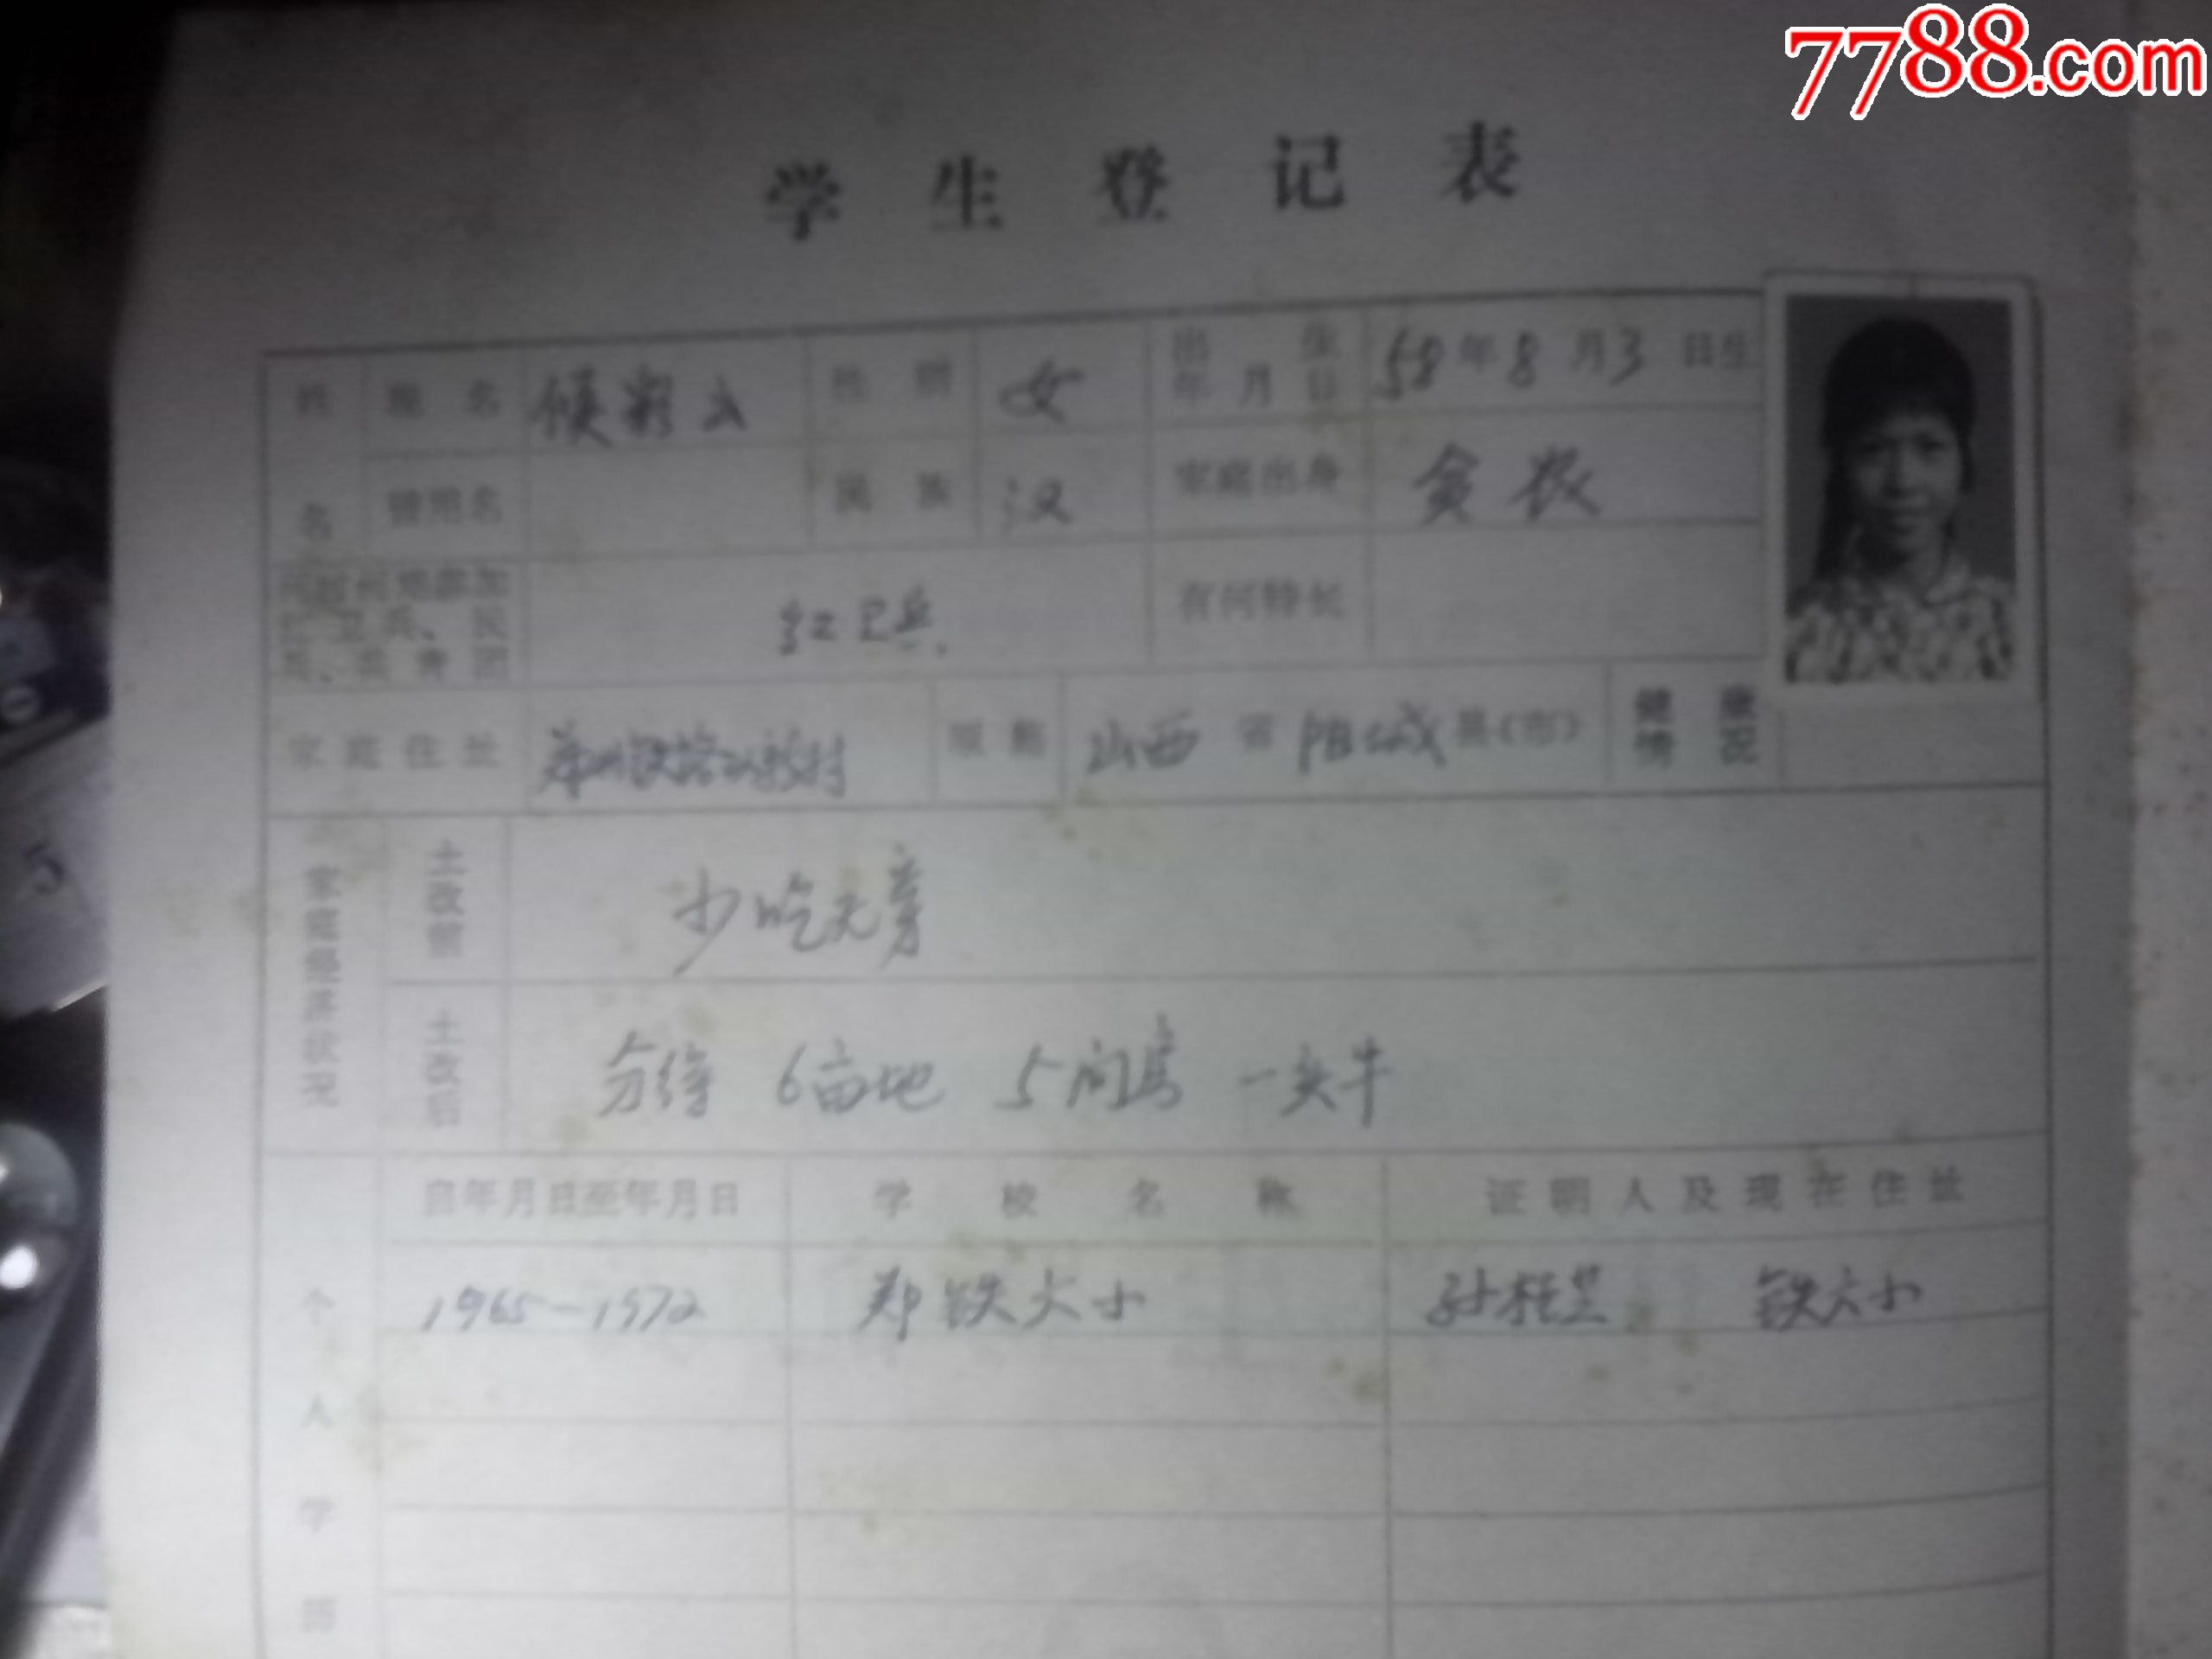 7788.com
学生登记表
姓名 现名 侯彩云 性别 女 出生年月日 58年8月3日生
曾用名 民族 汉 家庭出身 贫农
何时何地参加红卫兵、民兵、共青团 红卫兵. 有何特长
家庭住址 郑州铁路 村 原籍 山西省阳城县(市) 健康情况
家庭经济状况 土改前 少吃无穿
土改后 分得 6亩地 5间房 一头牛
个人学历 自年月日至年月日 学校名称 证明人及现在住址
1965-1972 郑铁六小 孙桂兰 铁六小